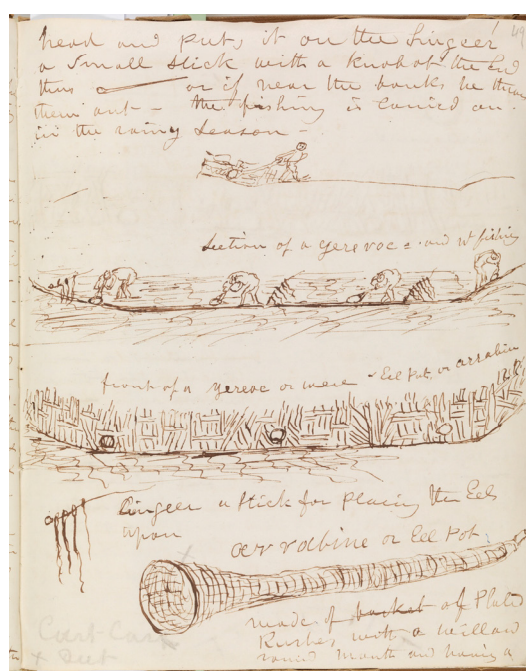 head and puts it on the lingeer
a small stick with a knob at the End
thus or if near the banks he throws
them out - the fishing is carried on
in the rainy season -
49
Section of a yereroc = and Nt fishing
front of a yeroc or weir - Eel Pot or arrabin
lingeer a stick for placing the Eels
upon
arrabine or Eel Pot.
made of basket of Plated
Rushes with a willow
round mouth and having a